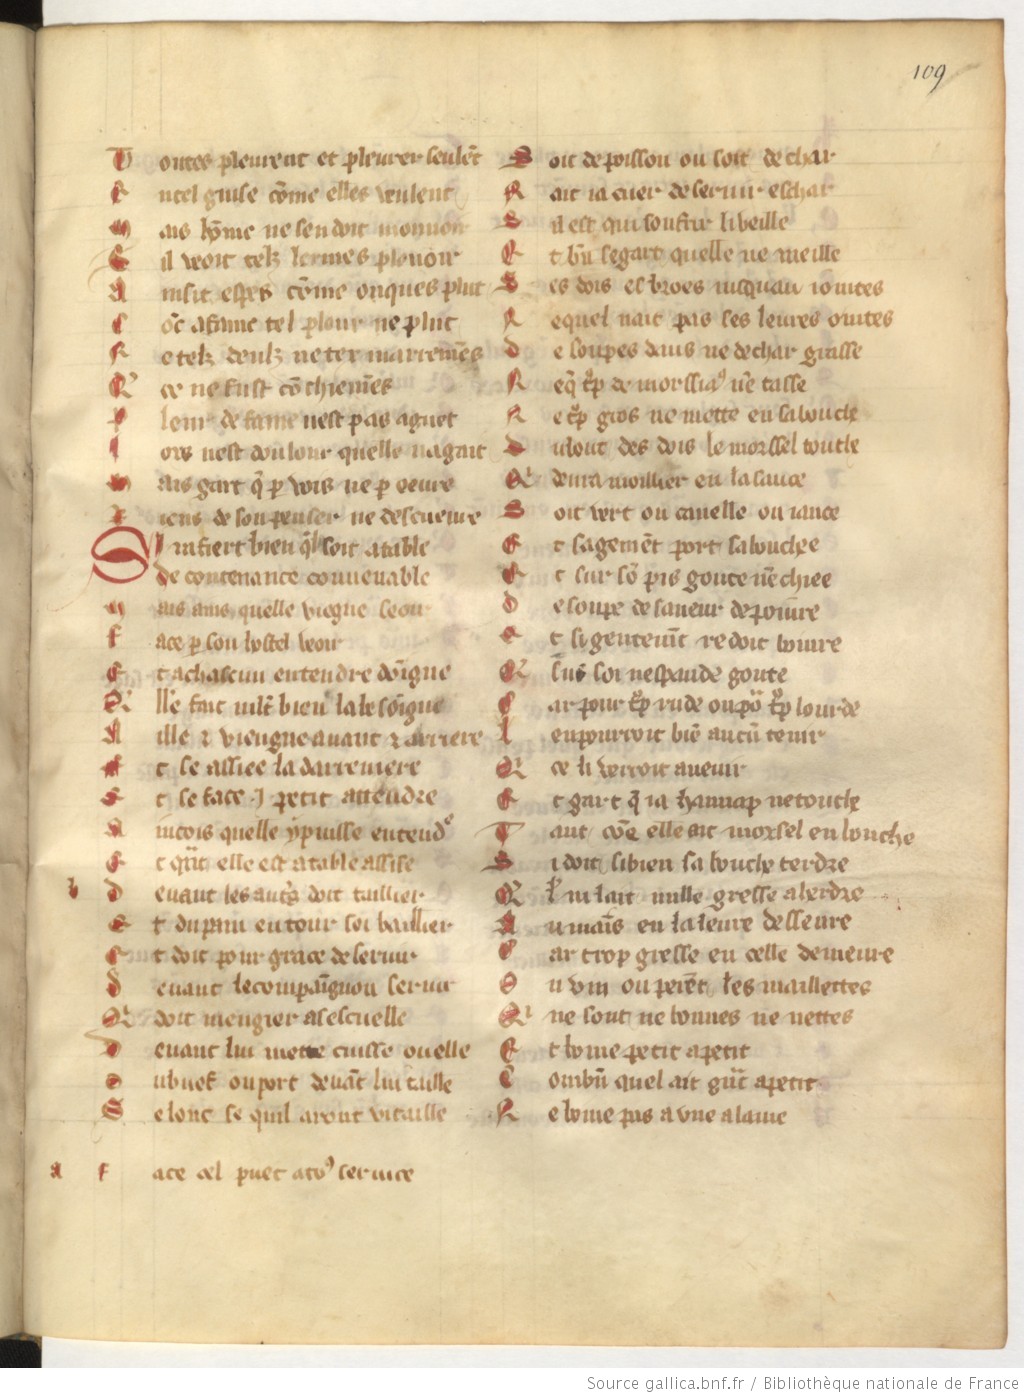 109
Toutes pleurent et pleurer seulẽt
En tel guise cõme elles veulent
Mais hõme ne sen doit mouuoir
Sil voit telz lermes plouoir
Ausit espes cõme onques plut
Coñc a fame tel plour ne plut
Ne telz deulz ne tex marremẽs
Que ce ne fust cõchiemẽs
Pleur de fame nest pas aguet
Lors nest doulour quelle nagait
Mais gart q̃ p vois ne p oeure
Riens de son penser ne descueure
Si rafiert bien q̃l soit a table
De contenance conuenable
Mais ains quelle viegne seoir
Face p son hostel veoir
Et a chascun entendre dõigne
Quelle fait mlt bien la besõigne
Aille ⁊ viengne auant ⁊ arriere
Et se assiee la darreniere
Et se face .j. petit attendre
Aincois quelle y puisse entendᵉ
Et qñt elle est a table assise
b Deuant les aut̃s doit taillier
Et du pain entour soi baillier
Et doit pour grace deseruir
Deuant le compaĩgnon seruir
Qui doit mengier a sescuelle
Deuant lui mette cuisse ou elle
Ou buef ou port deuãt lui taille
Selonc se quil aront vitaille
a Face cel puet a toꝰ seruice
Soit de poisson ou soit de char
Nait ia cuer de seruir eschar
Sil est qui soufrir li veille
Et bñ se gart quelle ne meille
Ses dois es broes iusquau iointes
Ne quel nait pas ses leures ointes
De soupes daus ne de char grasse
Ne q̃ tp̃ de morsiaꝰ nẽ tasse
Ne tp̃ gros ne mette en sa bouche
Du bout des dois le morssel touche
Que deura moillier en la sauce
Soit vert ou camelle ou iauce
Et sagemẽt port sa bouchee
Et sur sõ pis goute nẽ chiee
De soupe de saueur de poiure
Et si gentemẽt redoit boiure
Que sus soi nespande goute
Car pour tp̃ rude ou poᷣ tp̃ lourde
Len pourroit biẽ aucũ tenir
Que ce li verroit auenir
Et gart q̃ ia hannap ne touche
Tant cõe elle ait morsel en bouche
Si doit si bien sa bouche terdre
Quel ni lait nulle gresse aherdre
Au mais en la leure desseure
Car trop gresse en celle demeure
Ou vin ou perẽt les maillettes
Qui ne sont ne bonnes ne nettes
Et boiue petit a petit
Combñ quel ait gñt apetit
Ne boiue pas a vne alaine
Source gallica.bnf.fr / Bibliothèque nationale de France